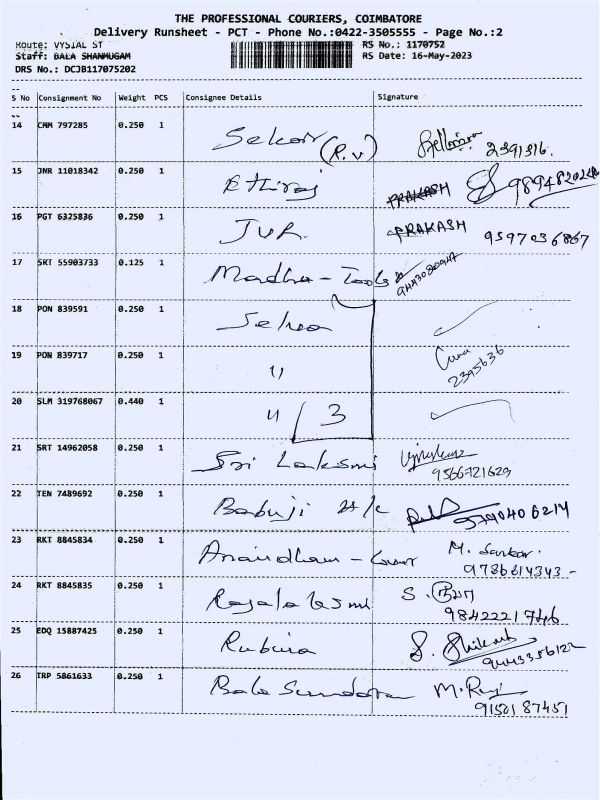 THE PROFESSIONAL COURIERS, COIMBATORE
Delivery Runsheet - PCT - Phone No.:0422-3505555 - Page No.:2
Route: VYSIAL ST RS No.: 1170752
Staff: BALA SHANMUGAM RS Date: 16-May-2023
DRS No.: DCJB117075202
S No Consignment No Weight PCS Consignee Details Signature
14 CMM 797285 0.250 1 Sekar (R.V) 2391316.
15 JNR 11018342 0.250 1 Ethiraj PRAKASH
16 PGT 6325836 0.250 1 JVR. PRAKASH 9597036867
17 SRT 55903733 0.125 1 Madha - Tools
18 PON 839591 0.250 1
19 PON 839717 0.250 1 〃 2395636
20 SLM 319768067 0.440 1 〃 3
21 SRT 14962058 0.250 1 Sri Laksmi 9566721629
22 TEN 7489692 0.250 1 Babuji 9790406214
23 RKT 8845834 0.250 1 M. Sankar. 9786614343-
24 RKT 8845835 0.250 1 Rajalaksmi S. 9842221746
25 EDQ 15887425 0.250 1 Rubina
26 TRP 5861633 0.250 1 Bala Sundaram 9150187451